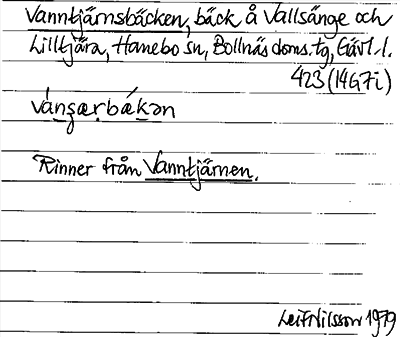 Vanntjärnsbäcken, bäck å Vallsänge och
Lilltjära, Hanebo sn, Bollnäs doms. tg, Gävl. l.
423 (14G7i)
vánʂærbǽkən
Rinner från Vanntjärnen.
Leif Nilsson 1979